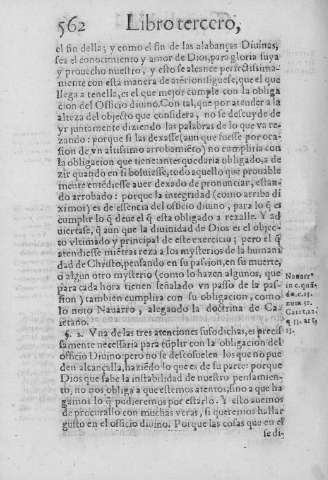 562 Libro tercero,
el fin della; y como el fin de las alabanças Diuinas,
sea el conocimiento y amor de Dios, para gloria suya
y prouecho nuestro, y esto se alcance perfectissima-
mente con esta manera de atencion: siguese, que el que
llega a tenella, es el que mejor cumple con la obliga
cion del Officio diuino. Con tal, que por atender a la
alteza del objecto que considera, no se descuyde de
yr juntamente diziendo las palabras de lo que va re-
zando: porque si las dexasse (aun que fuesse por oca-
sion de vn altissimo arrobamiẽto) no cumpliria con
la obligacion que tiene: antes quedaria obligado, a de
zir quando en si boluiesse, todo aquello que prouable
mente entẽdiesse auer dexado de pronunciar, estan-
do arrobado: porque la integridad (como arriba di
ximos) es de essencia del officio diuino, para lo q̃ es
cumplir lo q̃ deue el q̃ esta obligado a rezalle. Y ad
uiertase, q̃ aun que la diuinidad de Dios es el objec-
to vltimado y principal de este exercicio; pero el q̃
atendiesse miẽtras reza a los mysterios de la humani
dad de Christo, pensando en su passion, en su muerte,
o algun otro mysterio (como lo hazen algunos, que
para cada hora tienen señalado vn passo de la pas-
sion) tambien cumpliria con su obligacion, como
lo noto Nauarro, alegando la doctrina de Ca-
ietano.
Nauarr°
in c. quãdo
de c. 13.
num 57.
Caiet. 22.
q 13. art.
13.
§. 2. Vna de las tres atenciones susodichas, es preci-
samente necessaria para cũplir con la obligacion del
officio Diuino pero no se desconsuelen los que no pue
den alcançalla, haziẽdo lo que es de su parte: porque
Dios que sabe la instabilidad de nuestro pensamien-
to, no nos obliga a que estemos atentos, sino a que ha
gamos lo q̃ pudieremos por estarlo. Y esto auemos
de procurallo con muchas veras, si queremos hallar
gusto en el officio diuino. Porque las cosas que en el
se di-